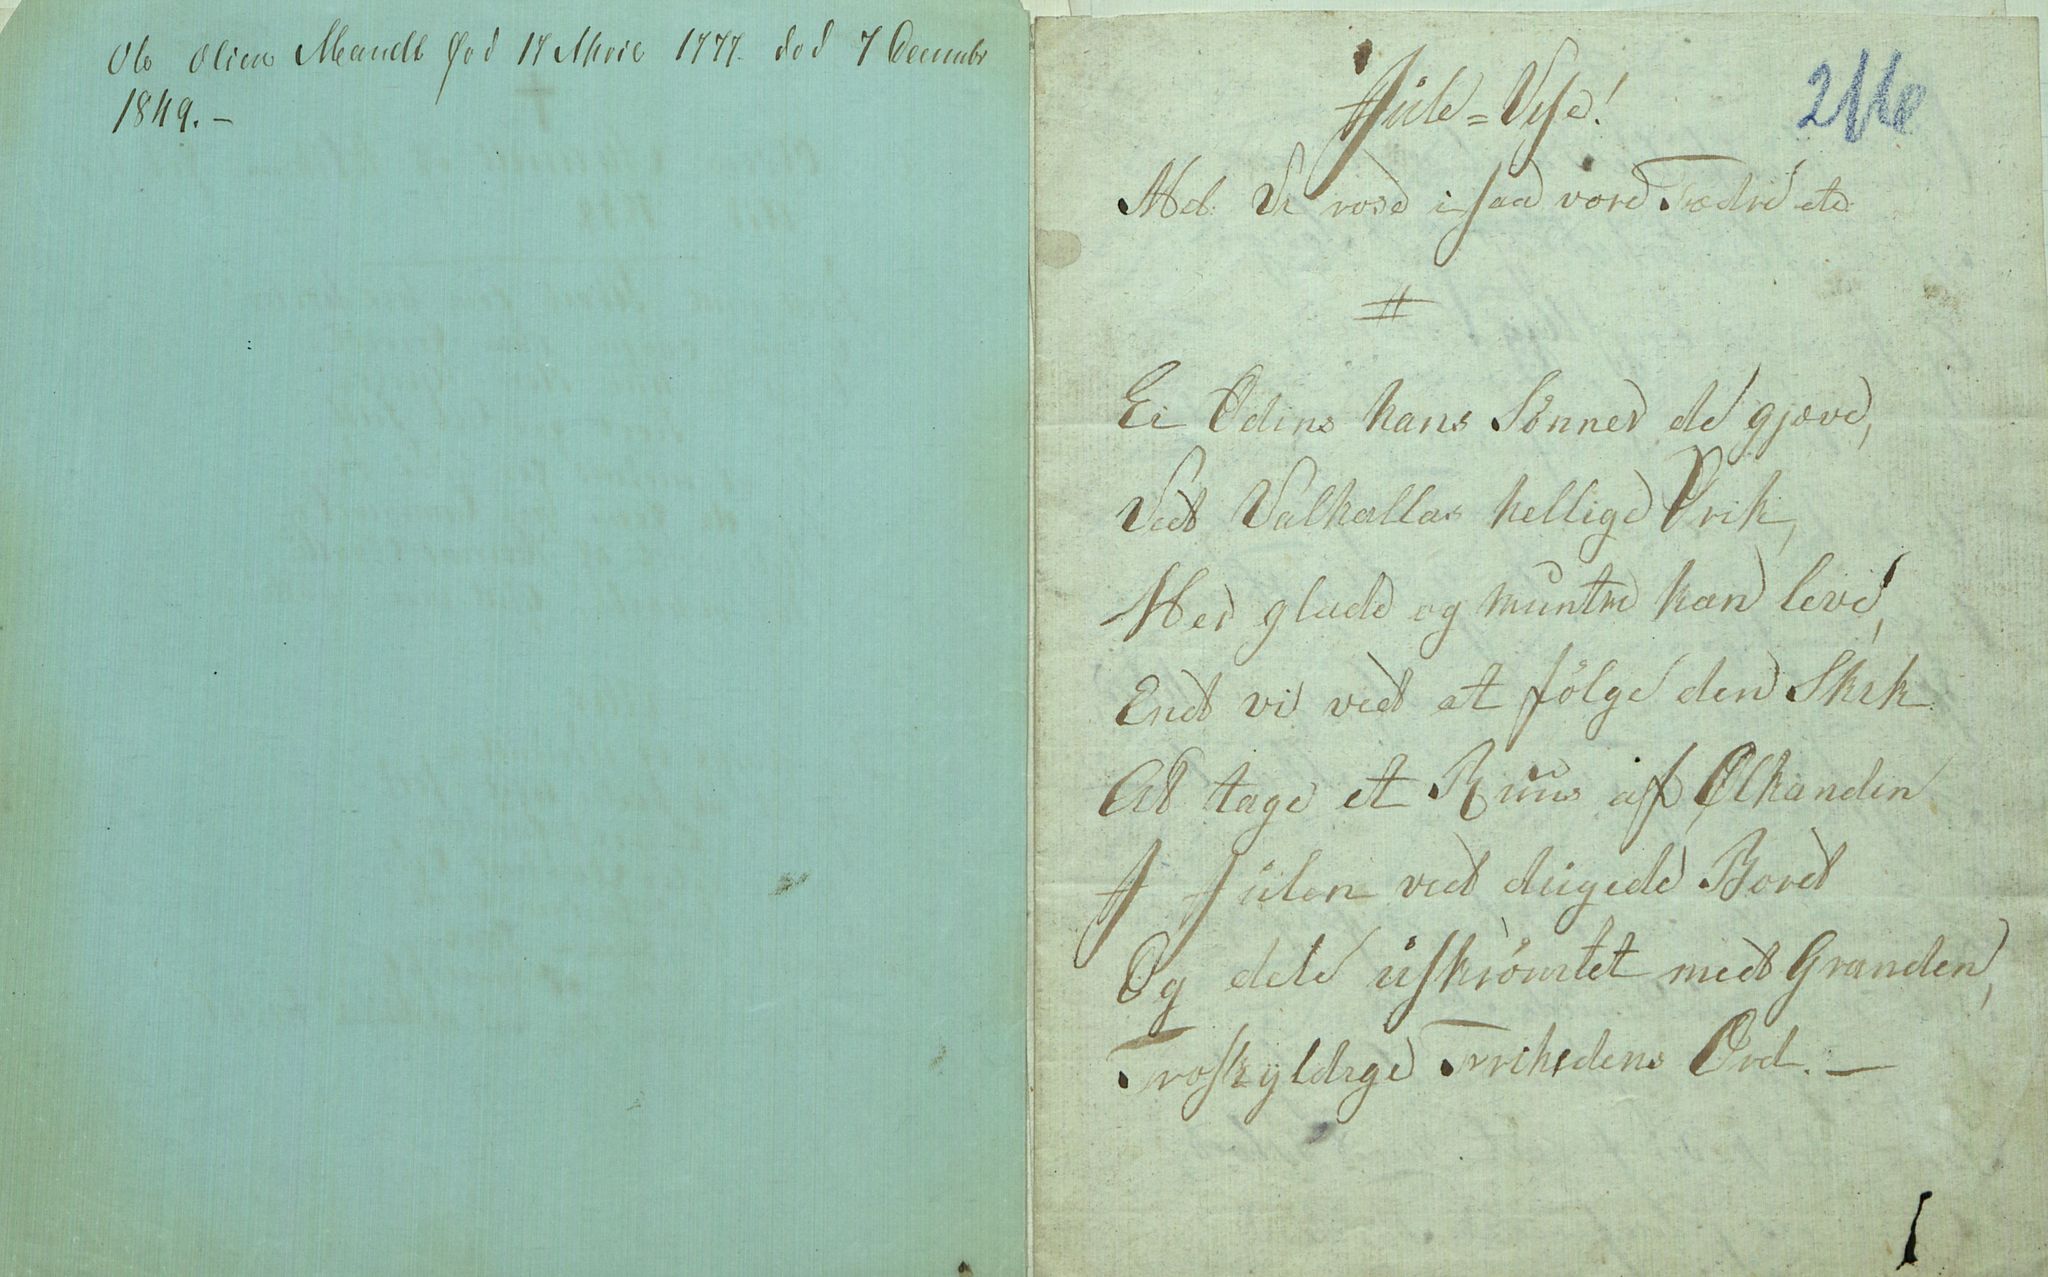 Ole Olsen Mandt Fød 17 April 1777. død 7 December
1849. –
Jule=Vise!
Mel: Vi rose i saa vore Fædre etc.
Ei Odins hans Sönner de gjæve,
Ved Valhallas hellige Vrik,
Mer glade og muntre kan leve,
End vi ved at fölge den Skik
At tage et Ruus af Ölkanden
I Julen ved dugede Bord
Og dele uskrömtet med Granden,
Troskyldige Frihedens Ord. –